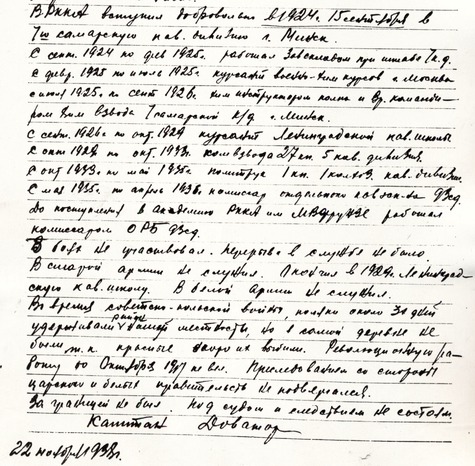 В РККА вступил добровольно в 1924г. 15 сентября в
7ю самарскую кав. дивизию г. Минск.
С сент. 1924 по фев 1925. работал Завскладом при штабе 7 к.д.
С февр. 1925 по июль 1925г. курсант военно-хим курсов г Москвы
с июля 1925г. по сент 1926. хим инструктором полка и вр. команди-
ром хим взвода 7 самарской к/д г. Минск.
С сент. 1926г по окт. 1929 курсант Ленинградской кав. школы
С окт 1929 по окт. 1933г. ком взвода 27 кп. 5 кав. дивизия.
С окт 1933г. по май 1935г. политрук 1 кп. 1 колхоз. кав. дивизии.
С мая 1935г. по апрель 1936г. комиссар отдельного
До поступления в академию РККА им М В Фрунзе работал
комиссаром ОРБ
В боях не участвовал. Перерыва в службе не было.
В старой армии не служил. Окончил в 1929г. Ленинград-
скую кав. школу. В белой армии не служил.
Во время советско-польской войны, поляки около 30 дней
удерживали район нашей местности, но в самой деревне не
были т.к. красные скоро их выбили. Революционную ра-
боту до Октября 1917 не вел. Преследованиям со стороны
царского и белых правительств не подвергался.
За границей не был. Под судом и следствием не состоял.
Капитан Доватор
22 ноября